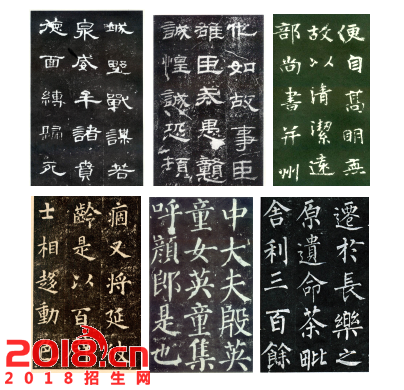 城野戰謀若
泉威牟諸賁
德面縛歸死
他如故事臣
雄臣戒愚戇
誠惶誠恐頓
便自髙明無
故以清潔遠
部尚書并州
痼又将延
齡是以百
士相趍動
中大夫殷英
童女英童集
呼顏郎是也
遷於長樂之
原遺命茶毗
舍利三百餘
2018.cn
2018招生网